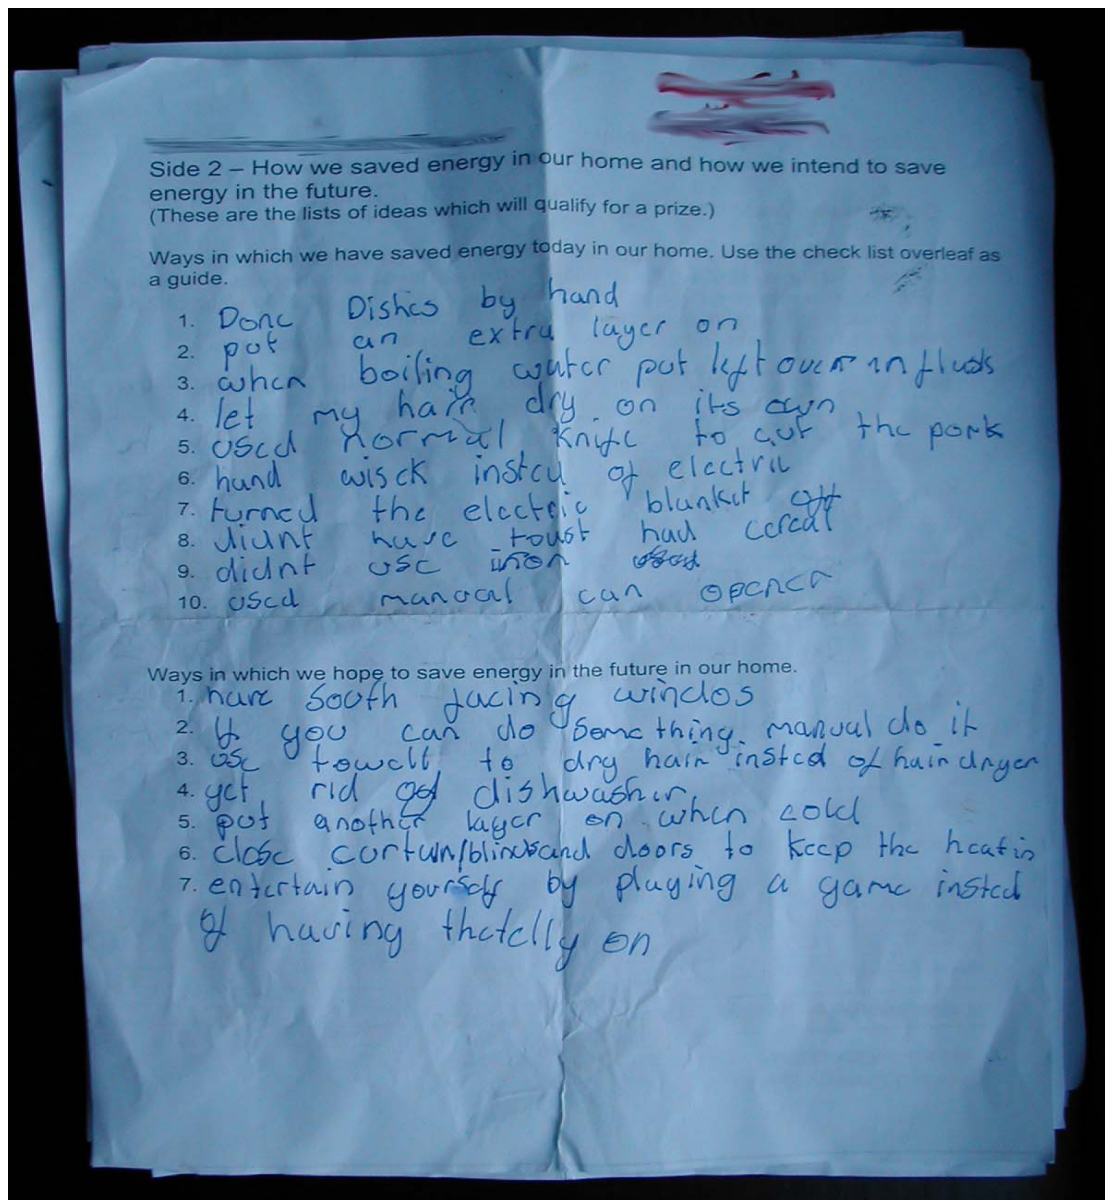 Side 2 – How we saved energy in our home and how we intend to save
energy in the future.
(These are the lists of ideas which will qualify for a prize.)
Ways in which we have saved energy today in our home. Use the check list overleaf as
a guide.
1. Done Dishes by hand
2. put an extra layer on
3. when boiling water put left over in flusk
4. let my hair dry on its own
5. used normal knife to cut the pork
6. hand wisck insted of electric
7. turned the electric blanket off
8. didnt have toast had cereal
9. didnt use iron
10. used manual can opener
Ways in which we hope to save energy in the future in our home.
1. have south facing windos
2. If you can do something manual do it
3. use towell to dry hair insted of hair dryer
4. get rid of dishwasher
5. put another layer on when cold
6. close curtun/blinds and doors to keep the heat in
7. entertain yourself by playing a game insted
of having the telly on